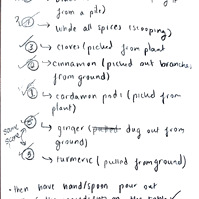 from a pile)
whole all spices (scooping)
③ cloves (picked from plant
② cinnamon (picked out branches,
from ground)
① cardamon pods (picked from
plant)
→ ginger (pulled dug out from
ground)
same
→ turmeric (pulled from ground)
• then have hand/spoon pour out